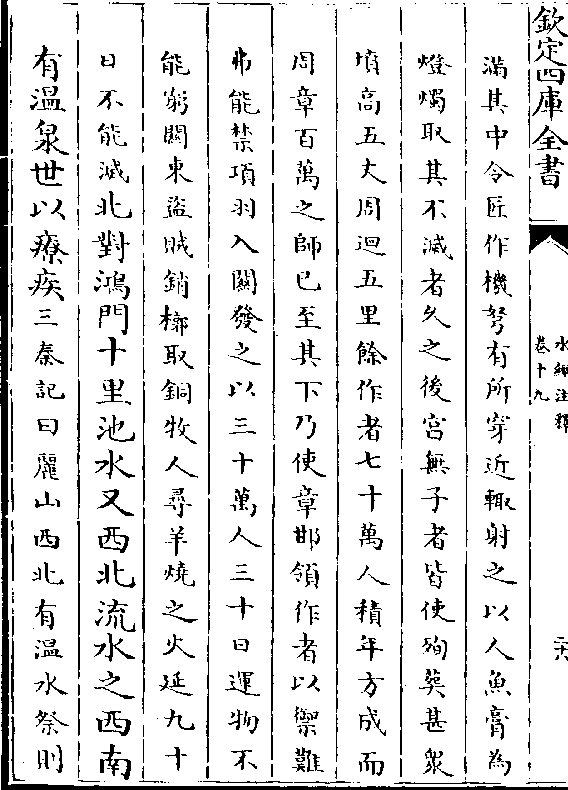 欽定四庫全書
水經注釋
卷十九
二六
滿其中令匠作機弩有所穿近輙射之以人魚膏為
燈燭取其不滅者久之後宮無子者皆使殉葬甚衆
墳高五丈周迴五里餘作者七十萬人積年方成而
周章百萬之師已至其下乃使章邯領作者以禦難
弗能禁項羽入關發之以三十萬人三十日運物不
能窮關東盜賊銷槨取銅牧人尋羊燒之火延九十
日不能滅北對鴻門十里池水又西北流水之西南
有溫泉世以療疾三秦記曰麗山西北有溫水祭則